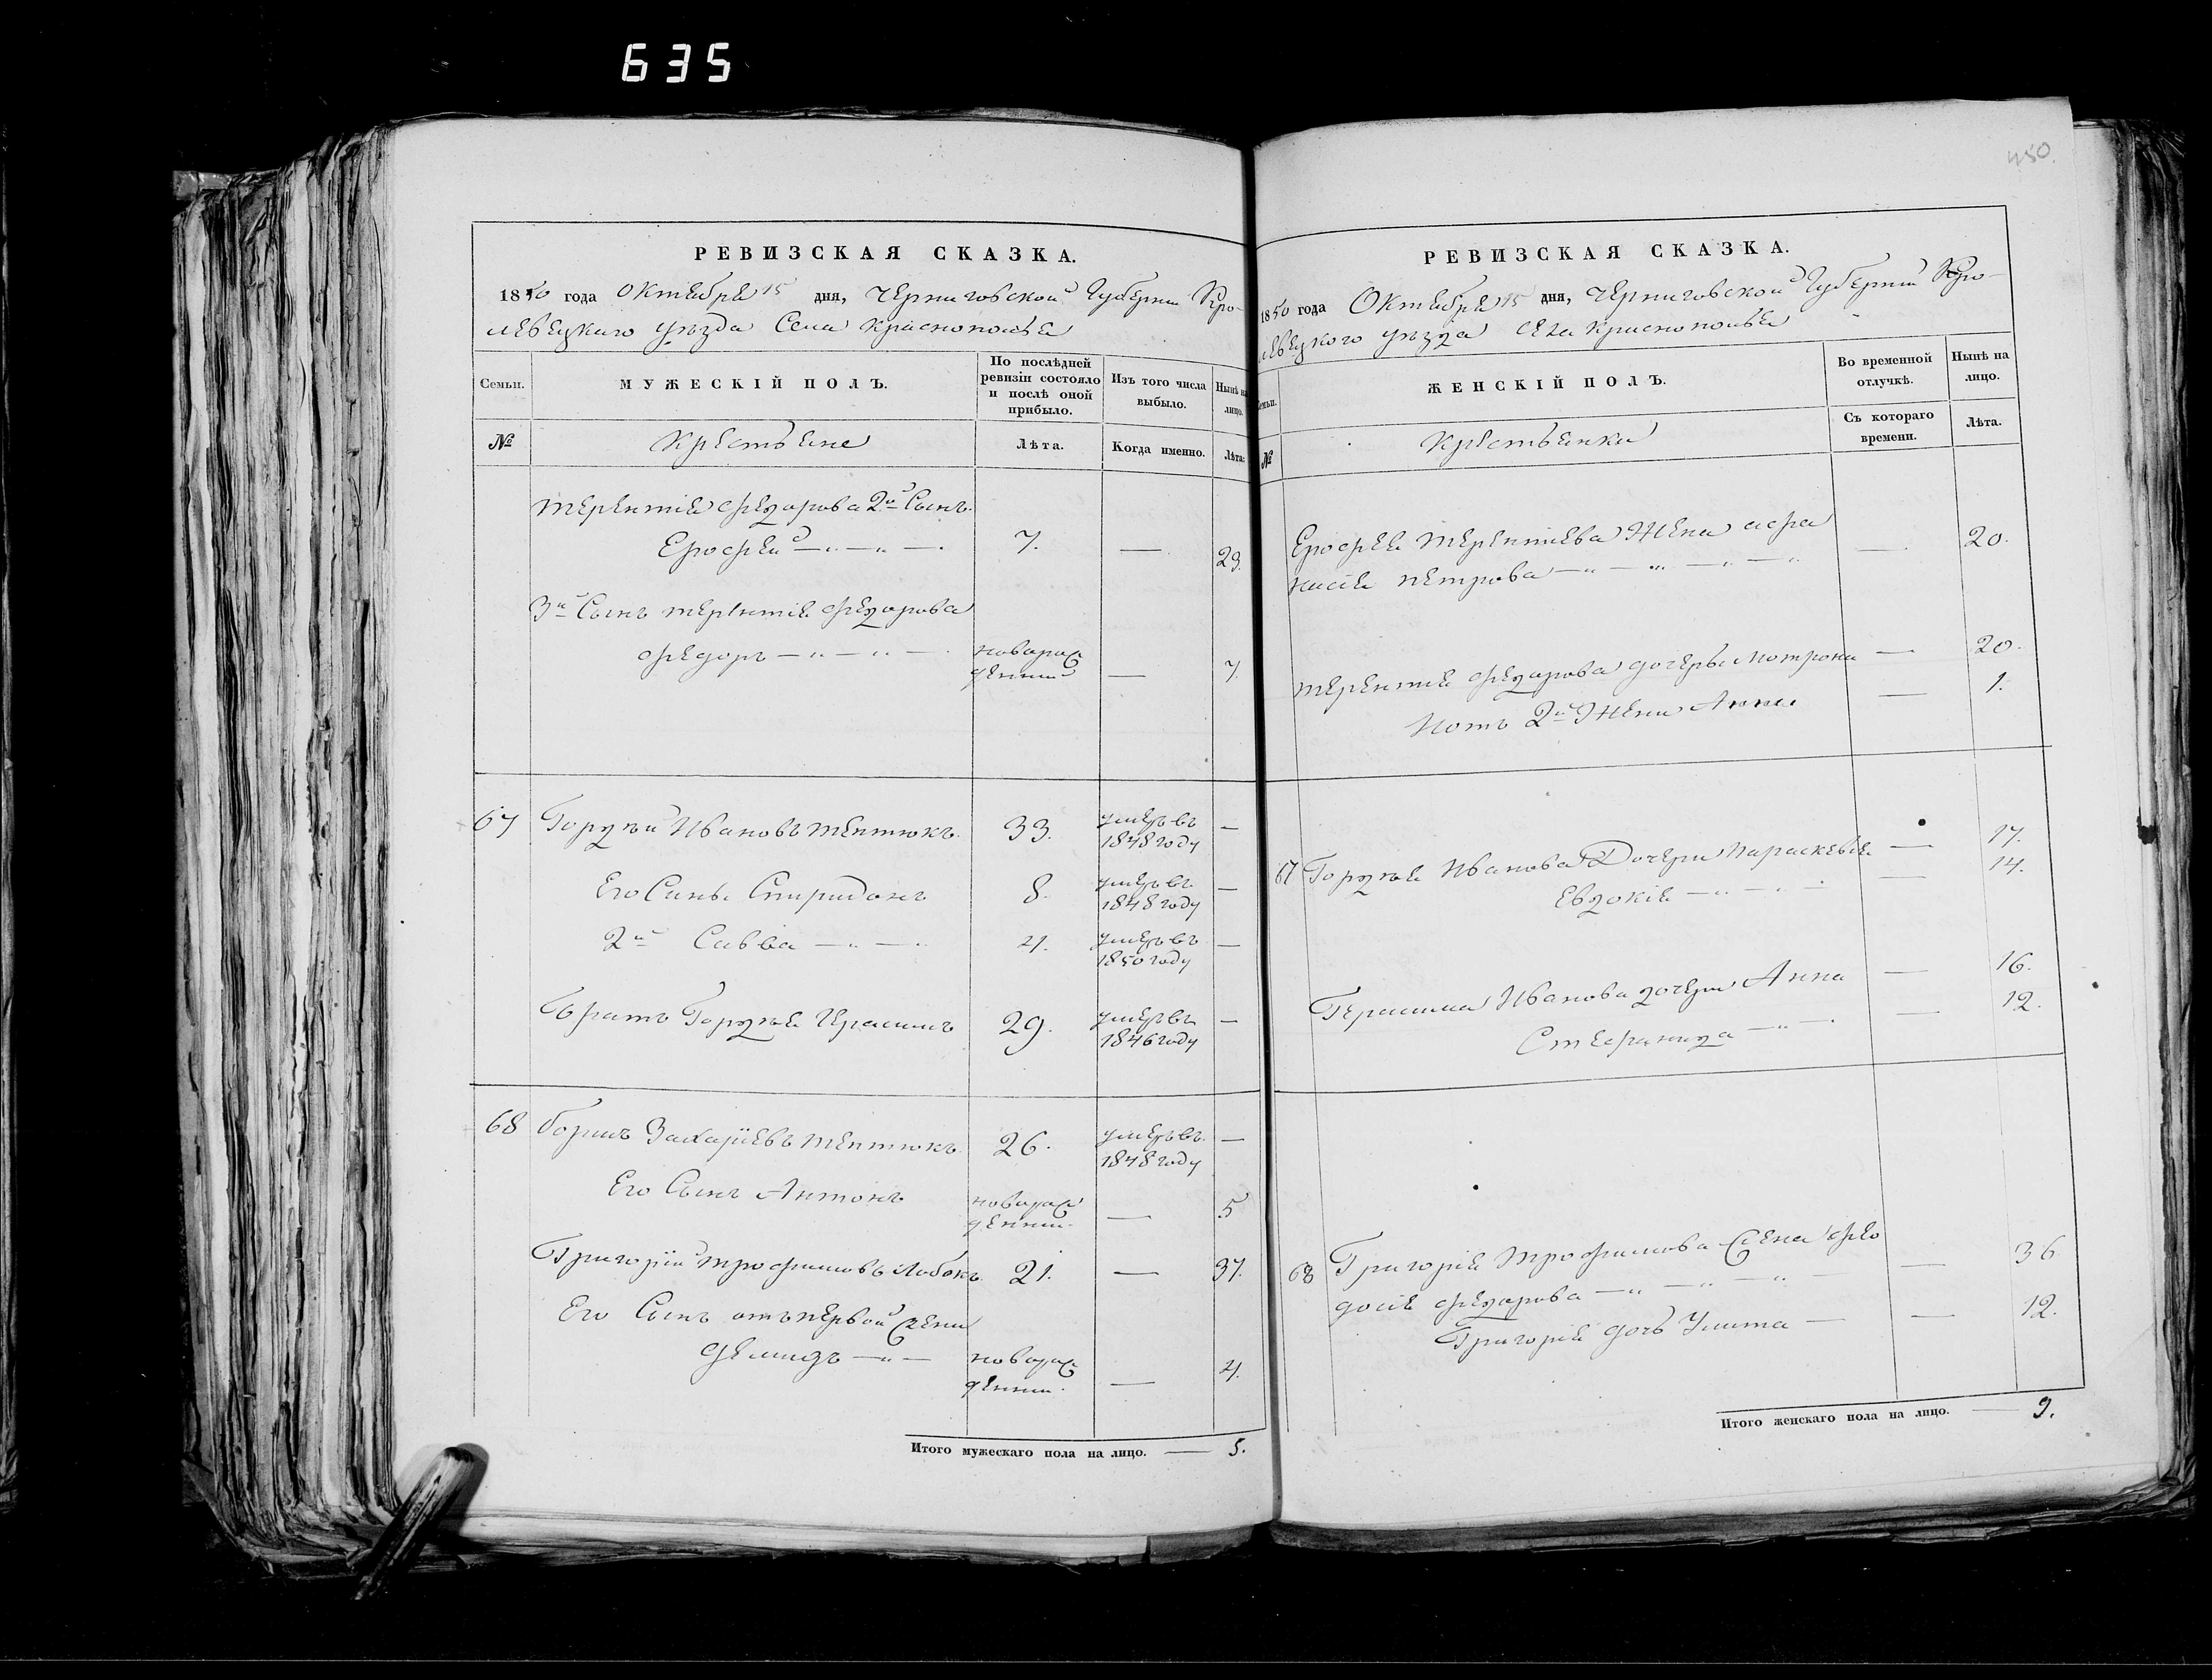 635
450.
РЕВИЗСКАЯ СКАЗКА.
1850 года Октября 15 дня, Черниговской Губерніи Кро-
левецкаго уѣзда Села Краснополья
Семьи.
МУЖЕСКІЙ ПОЛЪ.
По послѣдней ревизіи состояло и послѣ оной прибыло.
Изъ того числа выбыло.
Нынѣ на лицо.
№
Крестьяне
Лѣта.
Когда именно.
Лѣта.
Терентія Федорова 2й Сынъ
Ерофей — „ — „ — 7. — 23.
3й Сынъ Терентія Федорова
Федоръ — „ — „ — новорожденный — 7.
67 Гордѣй Ивановъ Тептюкъ. 33. умеръ въ 1848 году —
Его Сынъ Спиридонъ 8. умеръ въ 1848 году —
2й Савва — „ — „ 4. умеръ въ 1850 году —
Братъ Гордѣя Герасимъ 29. умеръ въ 1846 году —
68 Борисъ Захаріевъ Тептюкъ 26. умеръ въ 1848 году —
Его Сынъ Антонъ новорожденный — 5
Григорій Трофимовъ Лобокъ 21. — 37.
Его Сынъ отъ первой жены
Демидъ — „ — новорожденный — 4.
Итого мужескаго пола на лицо. — 5.
РЕВИЗСКАЯ СКАЗКА.
1850 года Октября 15 дня, Черниговской Губерніи Кро-
левецкого уѣзда села Краснополья
Семьи.
ЖЕНСКІЙ ПОЛЪ.
Во временной отлучкѣ.
Нынѣ на лицо.
№
Крестьянки
Съ котораго времени.
Лѣта.
Ерофея Терентіева Жена Афа
насія Петрова — „ — „ — „ — „ — 20.
Терентія Федорова дочерь Мотрона — 20.
И отъ 2й Жени Анна — 1.
67 Гордѣя Иванова Дочери Параскевія — 17.
Евдокія — „ — „ — 14.
Герасима Иванова дочери Анна — 16.
Стефанида — „ — 12.
68 Григорія Трофимова жена Фео
досія Федорова — „ — „ — „ — 36
Григорія дочь Улита — — 12.
Итого женскаго пола на лицо. — 9.